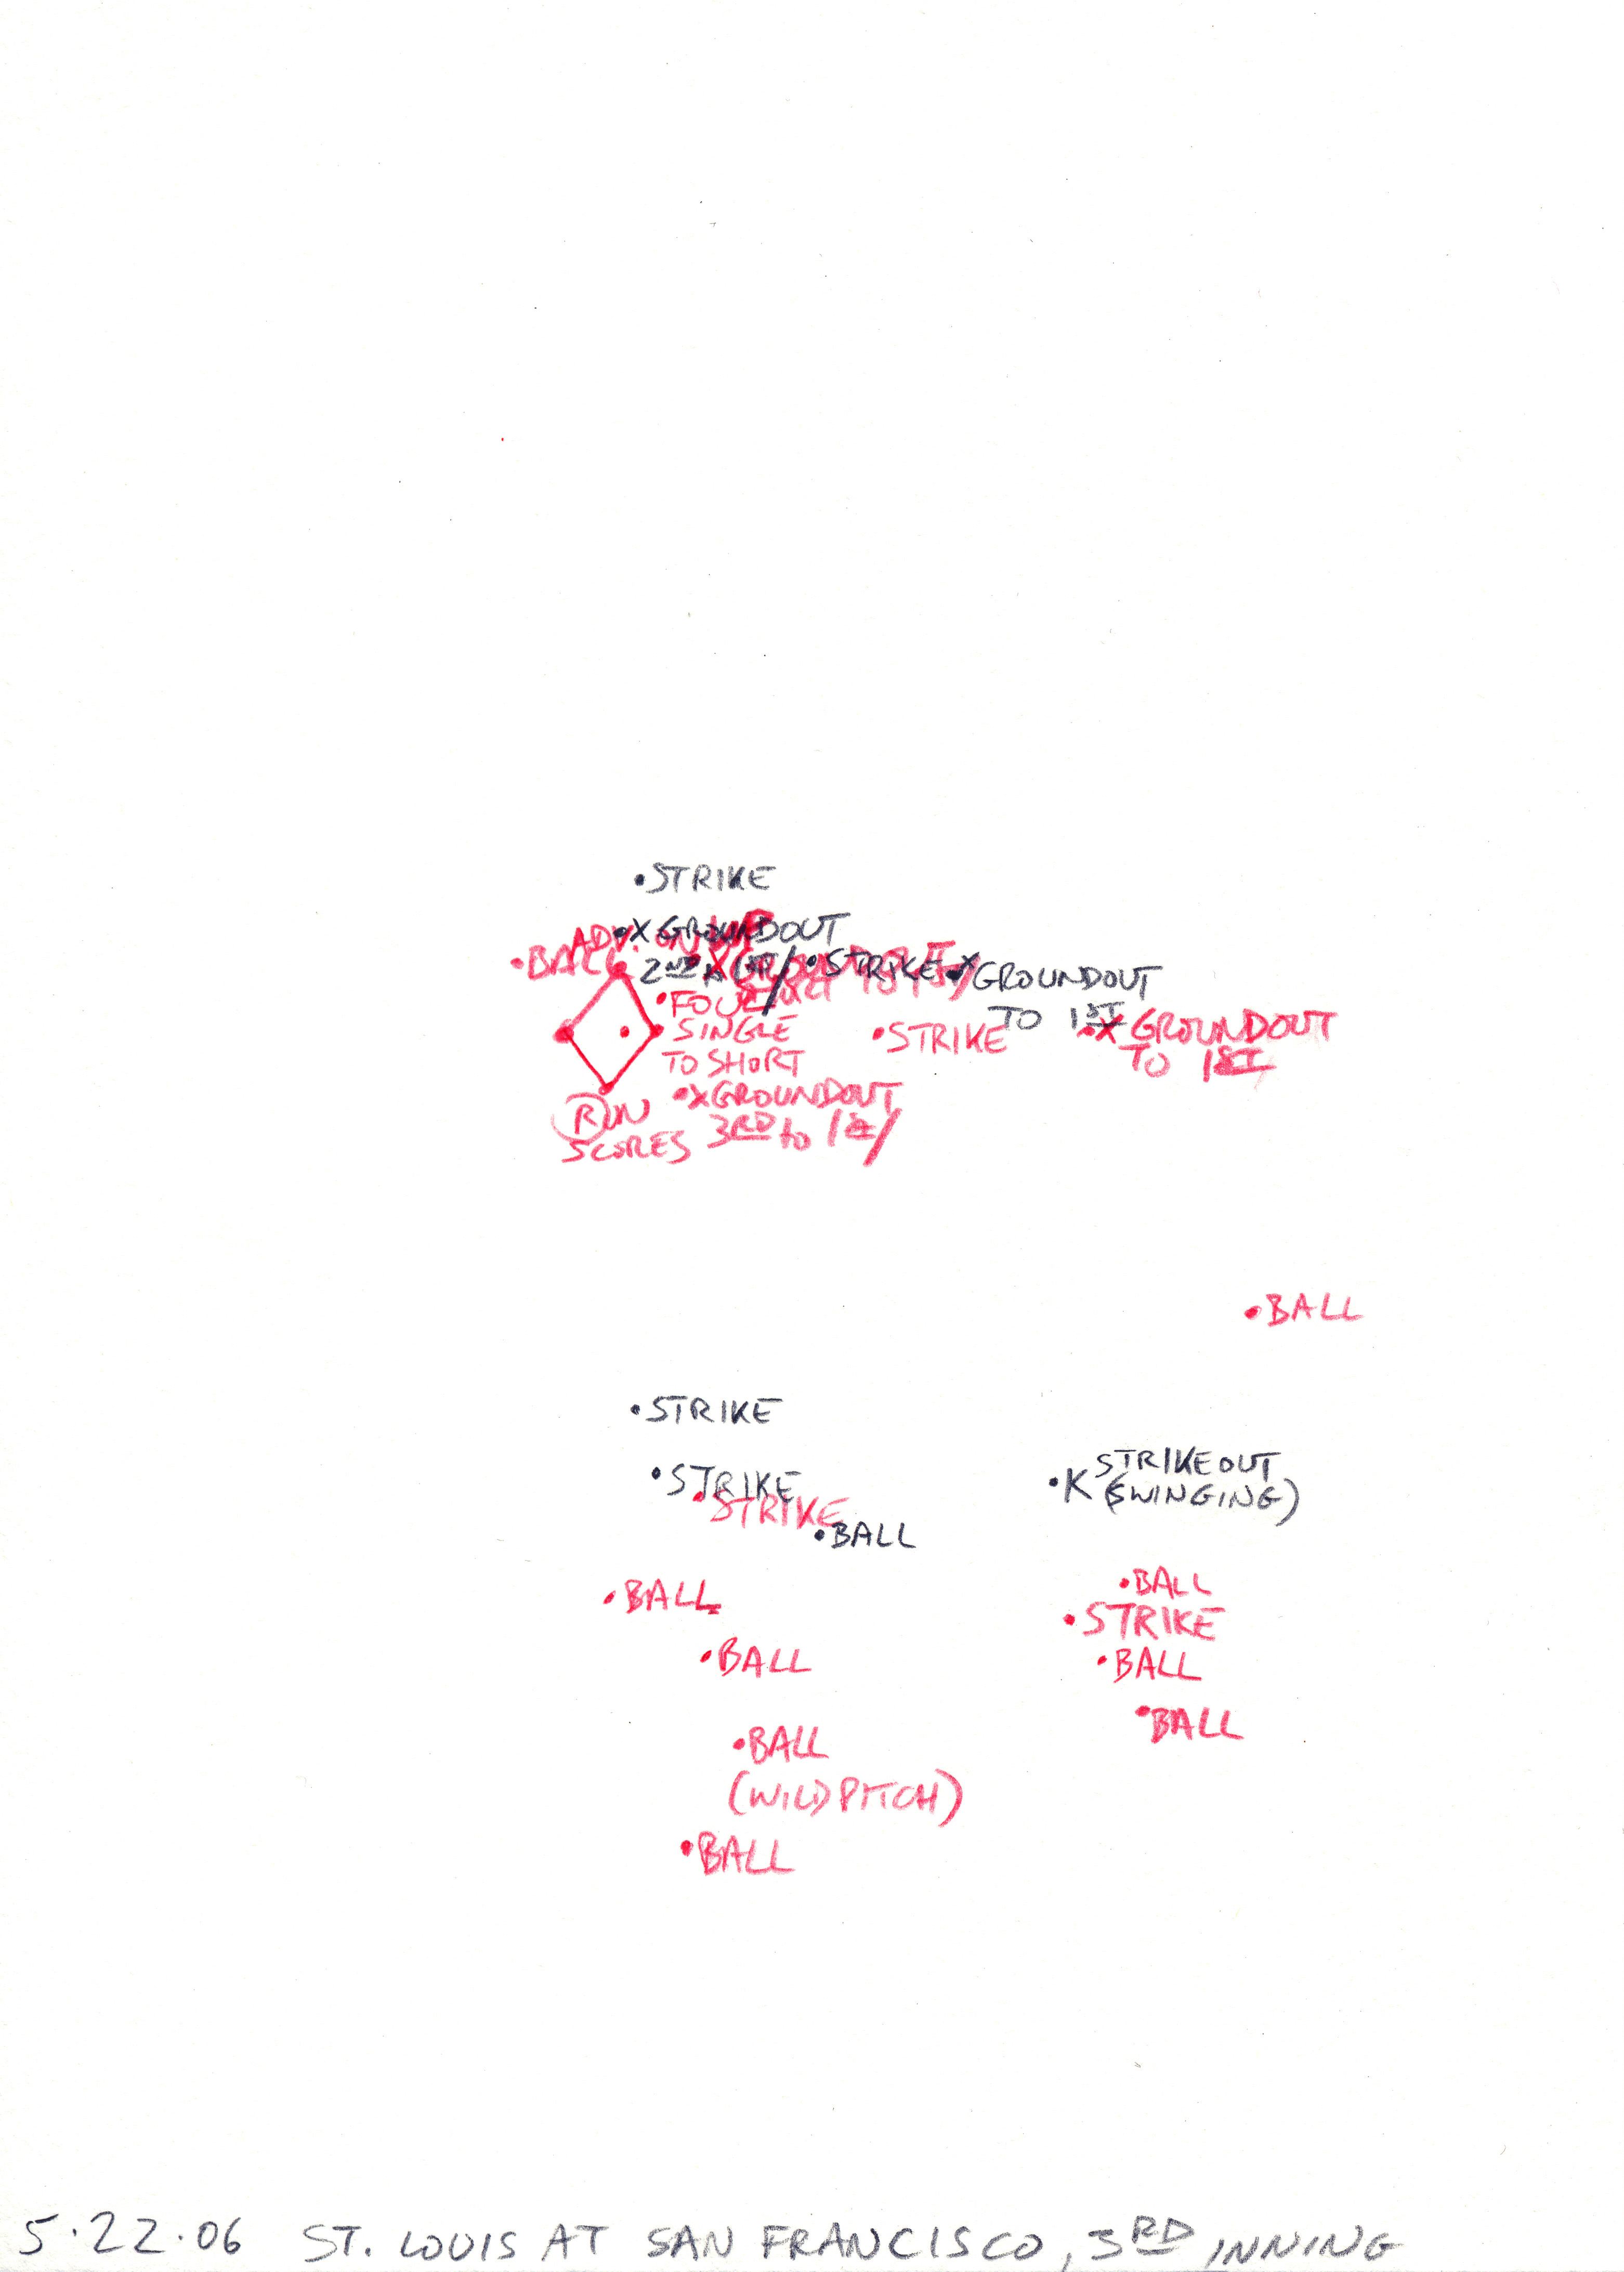 •STRIKE
•X GROUNDOUT
2ND to 1ST/
ADV. ON WP
•BALL
•X GROUNDOUT
SHORT TO 1ST/
•STRIKE
•X GROUNDOUT
TO 1ST
•FOUL
•SINGLE
TO SHORT
•STRIKE
•X GROUNDOUT
TO 1ST
RUN
SCORES
•X GROUNDOUT
3RD to 1st/
•BALL
•STRIKE
•STRIKE
•STRIKE
•BALL
•K STRIKEOUT
(SWINGING)
•BALL
•BALL
•STRIKE
•BALL
•BALL
•BALL
•BALL
(WILD PITCH)
•BALL
5·22·06 ST. LOUIS AT SAN FRANCISCO, 3RD INNING